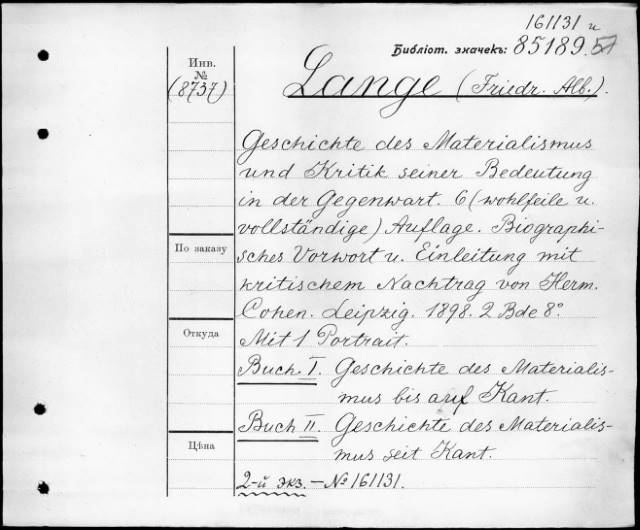 161131 и
Библіот. значекъ: 85189.
Инв.
№
(8737)
Lange (Friedr. Alb.).
Geschichte des Materialismus
und Kritik seiner Bedeutung
in der Gegenwart. 6 (wohlfeile u.
vollständige) Auflage. Biographi-
sches Vorwort u. Einleitung mit
kritischem Nachtrag von Herm.
Cohen. Leipzig. 1898. 2 Bde 8°
Mit 1 Portrait.
Buch. I. Geschichte des Materialis-
mus bis auf Kant.
Buch II. Geschichte des Materialis-
mus seit Kant.
2-й экз. – № 161131.
По заказу
Откуда
Цѣна